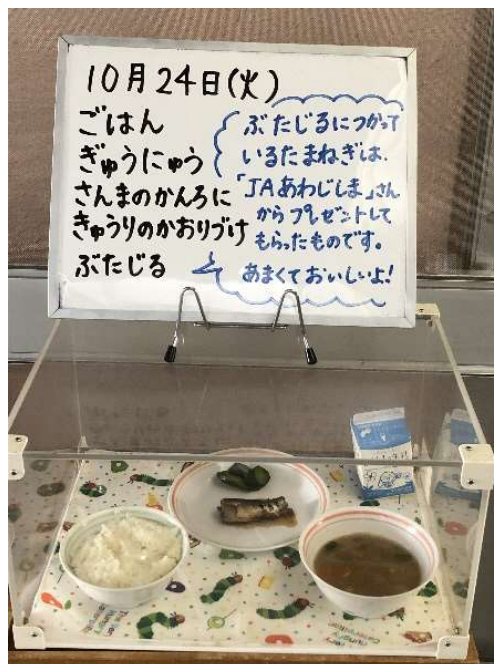 10月24日(火)
ごはん
ぎゅうにゅう
さんまのかんろに
きゅうりのかおりづけ
ぶたじる
ぶたじるにつかって
いるたまねぎは、
「JAあわじしま」さん
からプレゼントして
もらったものです。
あまくておいしいよ!